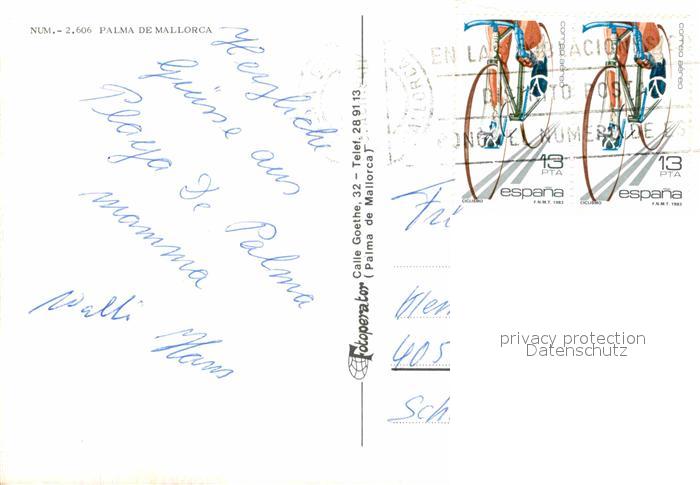 NUM.- 2.606 PALMA DE MALLORCA
Herzliche
Grüsse aus
Playa De Palma
mamma
Walli Hans
Fotoperator Calle Goethe, 32 - Telef. 28 91 13
( Palma de Mallorca)
correo aéreo
13
PTA
españa
CICLISMO F.N.M.T. 1983
correo aéreo
13
PTA
españa
CICLISMO F.N.M.T. 1983
EN LAS
NUMERO DE
405
Sch
privacy protection
Datenschutz